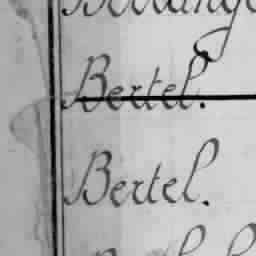 Bertel.
Bertel.